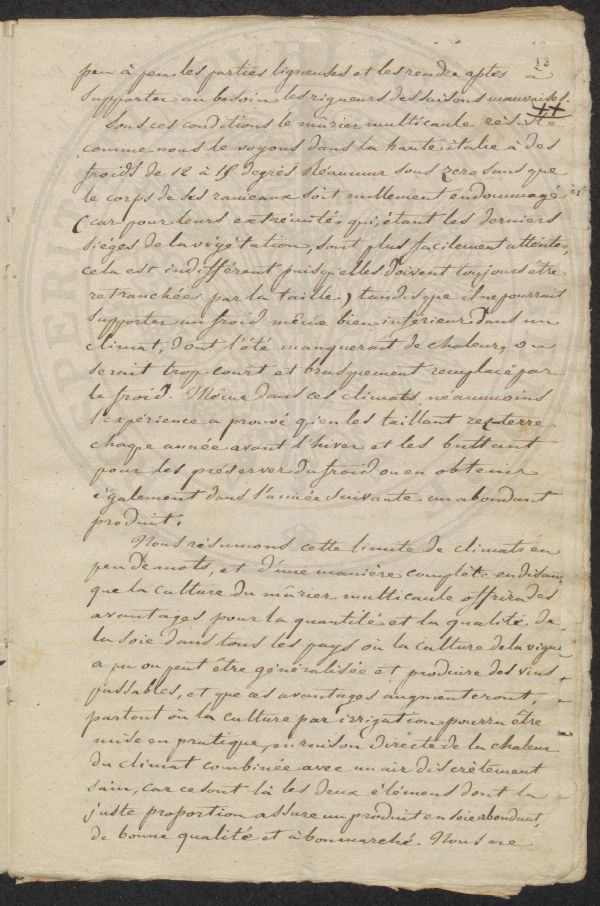 13
peu à peu les parties ligneuses et les rendre aptes à
supporter au besoin les rigueurs des saisons mauvaises.
Sous ces conditions le mûrier multicaule résiste
comme nous le voyons dans la haute italie à des
froids de 12 à 18 degrés Réaumur sous zero sans que
le corps de ses rameaux soit nullement endommagé
(car pour leurs extrémités qui, étant les derniers
siéges de la végétation, sont plus facilement atteintes,
cela est indifférent puisqu'elles doivent toujours être
retranchées par la taille) tandis que il ne pourrait
supporter un froid même bien inférieur dans un
climat, dont l'été manquerait de chaleur, ou
serait trop court et brusquement remplacé par
le froid. Même dans ces climats, neaumoins
l'expérience a prouvé qu'en les taillant rez-terre
chaque année avant l'hiver et les buttant
pour les préserver du froid on en obtenir
également dans l'année suivante un abondant
produit.
Nous résumons cette limite de climats en
peu de mots, et d'une manière complète en disant,
que la culture du mûrier multicaule offrira des
avantages pour la quantité et la qualité de
la soie dans tous les pays où la culture de la vigne
a pu ou peut être généralisée et produire des vins
passables, et que ces avantages augmenteront,
partout où la culture par irrigation pourra être
mise en pratique, en raison directe de la chaleur
du climat combinée avec un air discrètement
sain, car ce sont là les deux élémens dont la
juste proportion assure un produit en soie abondant,
de bonne qualité et à bon marché. Nous ne